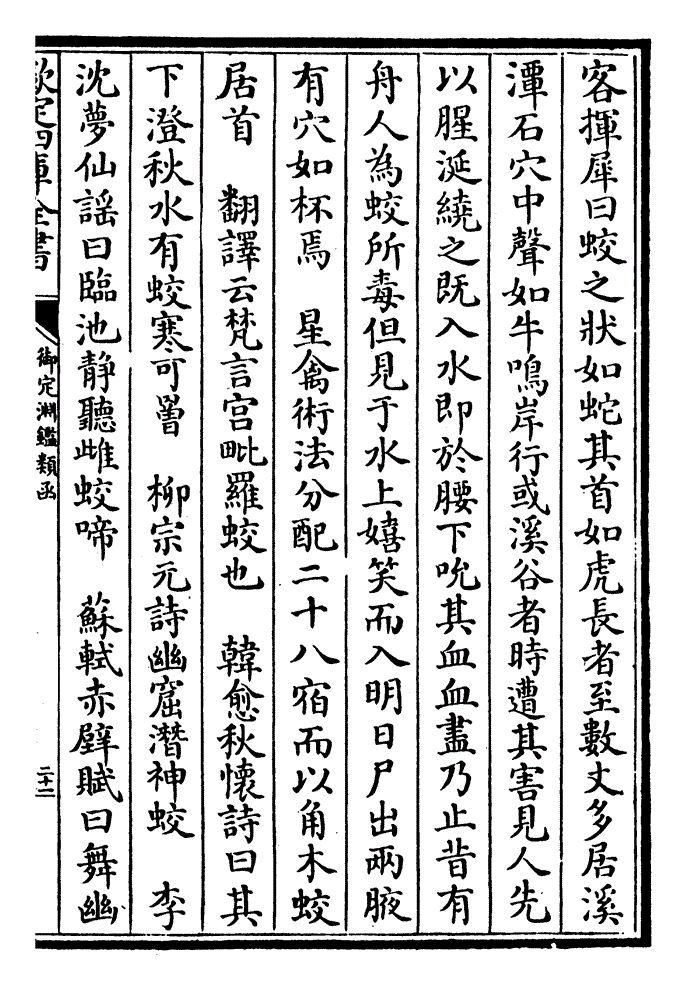 客揮犀曰蛟之狀如蛇其首如虎長者至數丈多居溪
潭石穴中聲如牛鳴岸行或溪谷者時遭其害見人先
以腥涎繞之既入水即於腰下吮其血血盡乃止昔有
舟人為蛟所毒但見于水上嬉笑而入明日尸出兩腋
有穴如杯焉　星禽術法分配二十八宿而以角木蛟
居首　翻譯云梵言宫毗羅蛟也　韓愈秋懷詩曰其
下澄秋水有蛟寒可罾　柳宗元詩幽窟潛神蛟　李
沈夢仙謡曰臨池靜聽雌蛟啼　蘇軾赤壁賦曰舞幽
欽定四庫全書
御定淵鑑類函
二十二